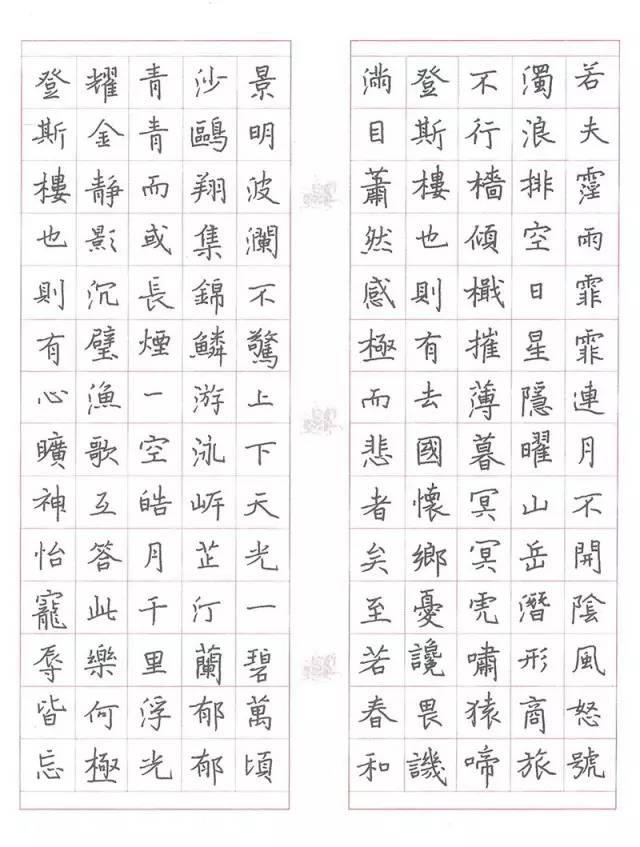 若夫霪雨霏霏連月不開陰風怒號
濁浪排空日星隱曜山岳潛形商旅
不行檣傾檝摧薄暮冥冥虎嘯猿啼
登斯樓也則有去國懷鄉憂讒畏譏
滿目蕭然感極而悲者矣至若春和
景明波瀾不驚上下天光一碧萬頃
沙鷗翔集錦鱗游泳岸芷汀蘭郁郁
青青而或長煙一空皓月千里浮光
耀金靜影沉璧漁歌互答此樂何極
登斯樓也則有心曠神怡寵辱皆忘